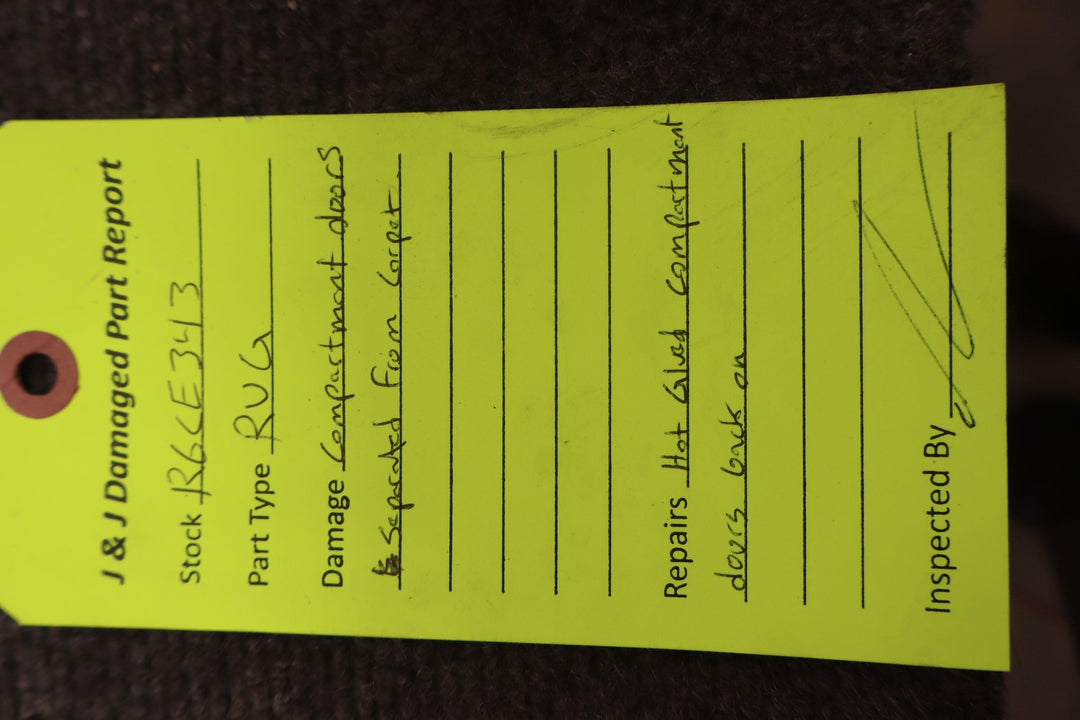 J & J Damaged Part Report
Stock RGCE343
Part Type RUG
Damage Compartment doors
separated from carpet.
Repairs Hot Glued compartment
doors back on
Inspected By